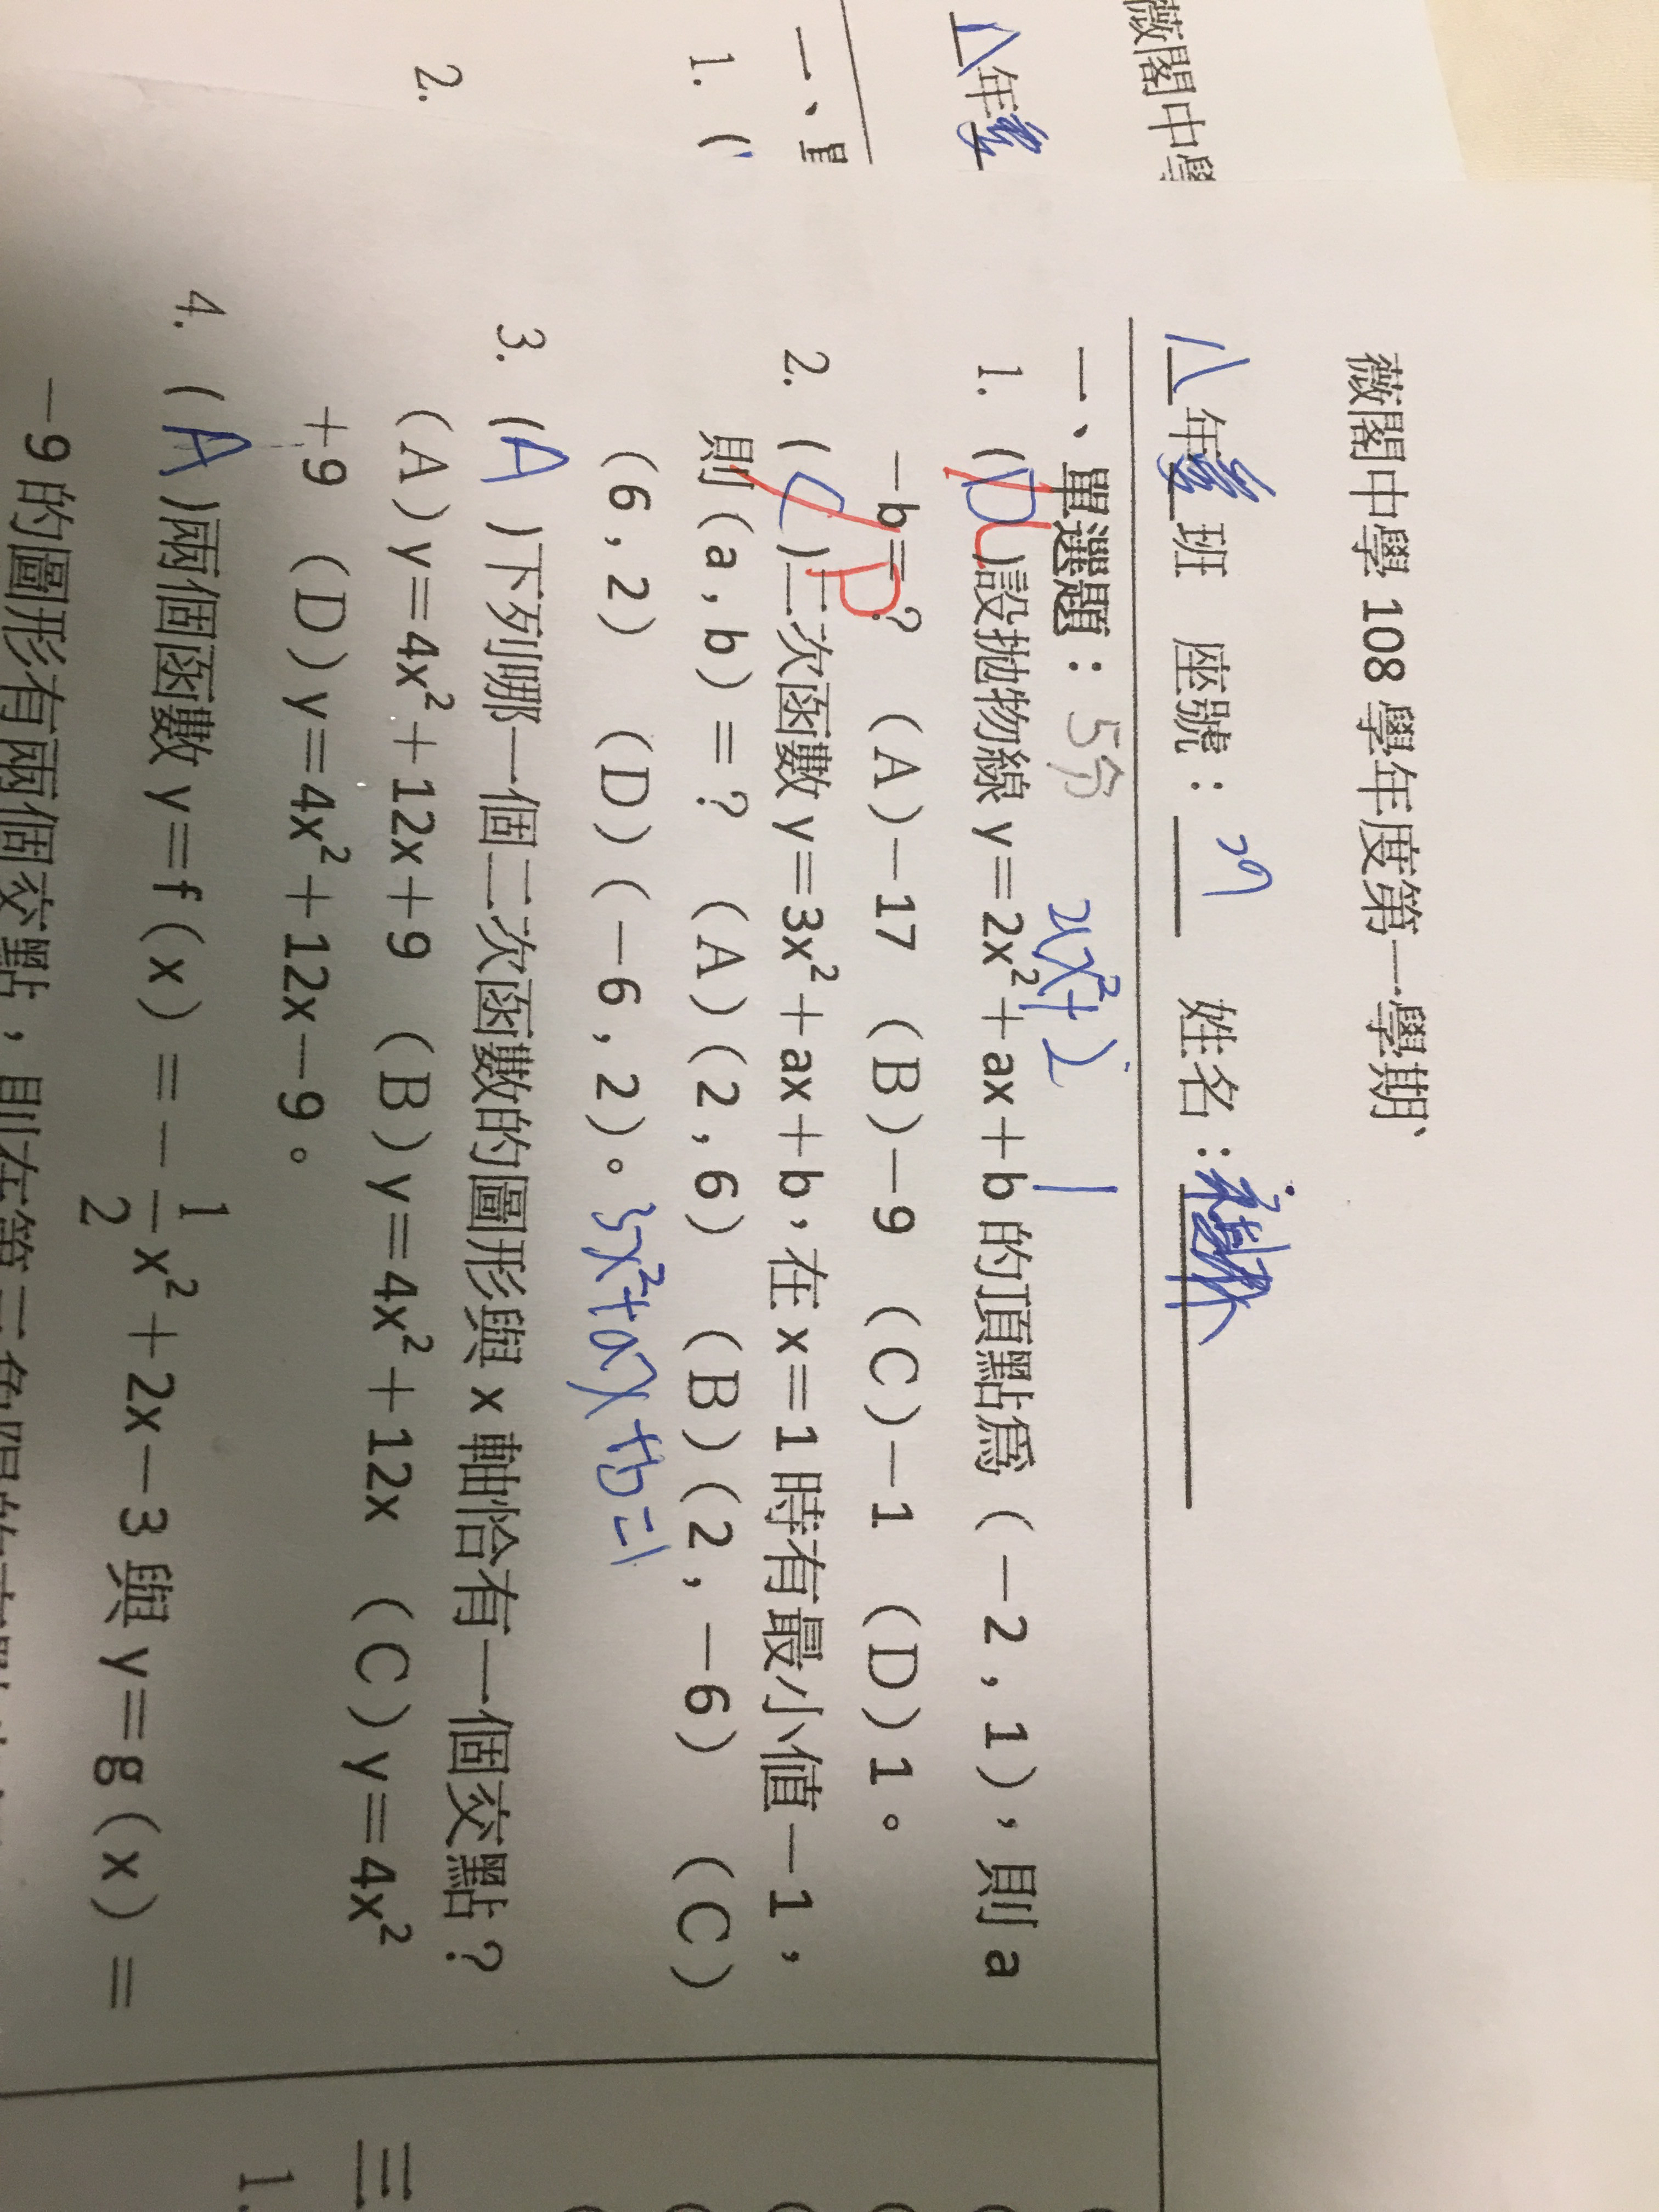 薇閣中學 108 學年度第一學期
八年 班 座號: 姓名:
一、單選題:5分
2x²+ 1
1. (D)設拋物線 y=2x²+ax+b 的頂點為(-2,1),則 a
-b=? (A)-17 (B)-9 (C)-1 (D)1。
2. (C)D二次函數 y=3x²+ax+b,在 x=1 時有最小值-1,
則(a,b)=? (A)(2,6) (B)(2,-6) (C)
(6,2) (D)(-6,2)。3x²+ax+b=1
3. (A)下列哪一個二次函數的圖形與 x 軸恰有一個交點?
(A)y=4x²+12x+9 (B)y=4x²+12x (C)y=4x²
+9 (D)y=4x²+12x-9。
4. (A)兩個函數 y=f(x)=-1/2x²+2x-3 與 y=g(x)=
-9 的圖形有兩個交點,則在第三象限的
薇閣中學
八年
一、
1. (
2.
三
1.